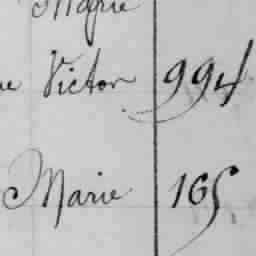 Marie
Victor 994
Marie 165